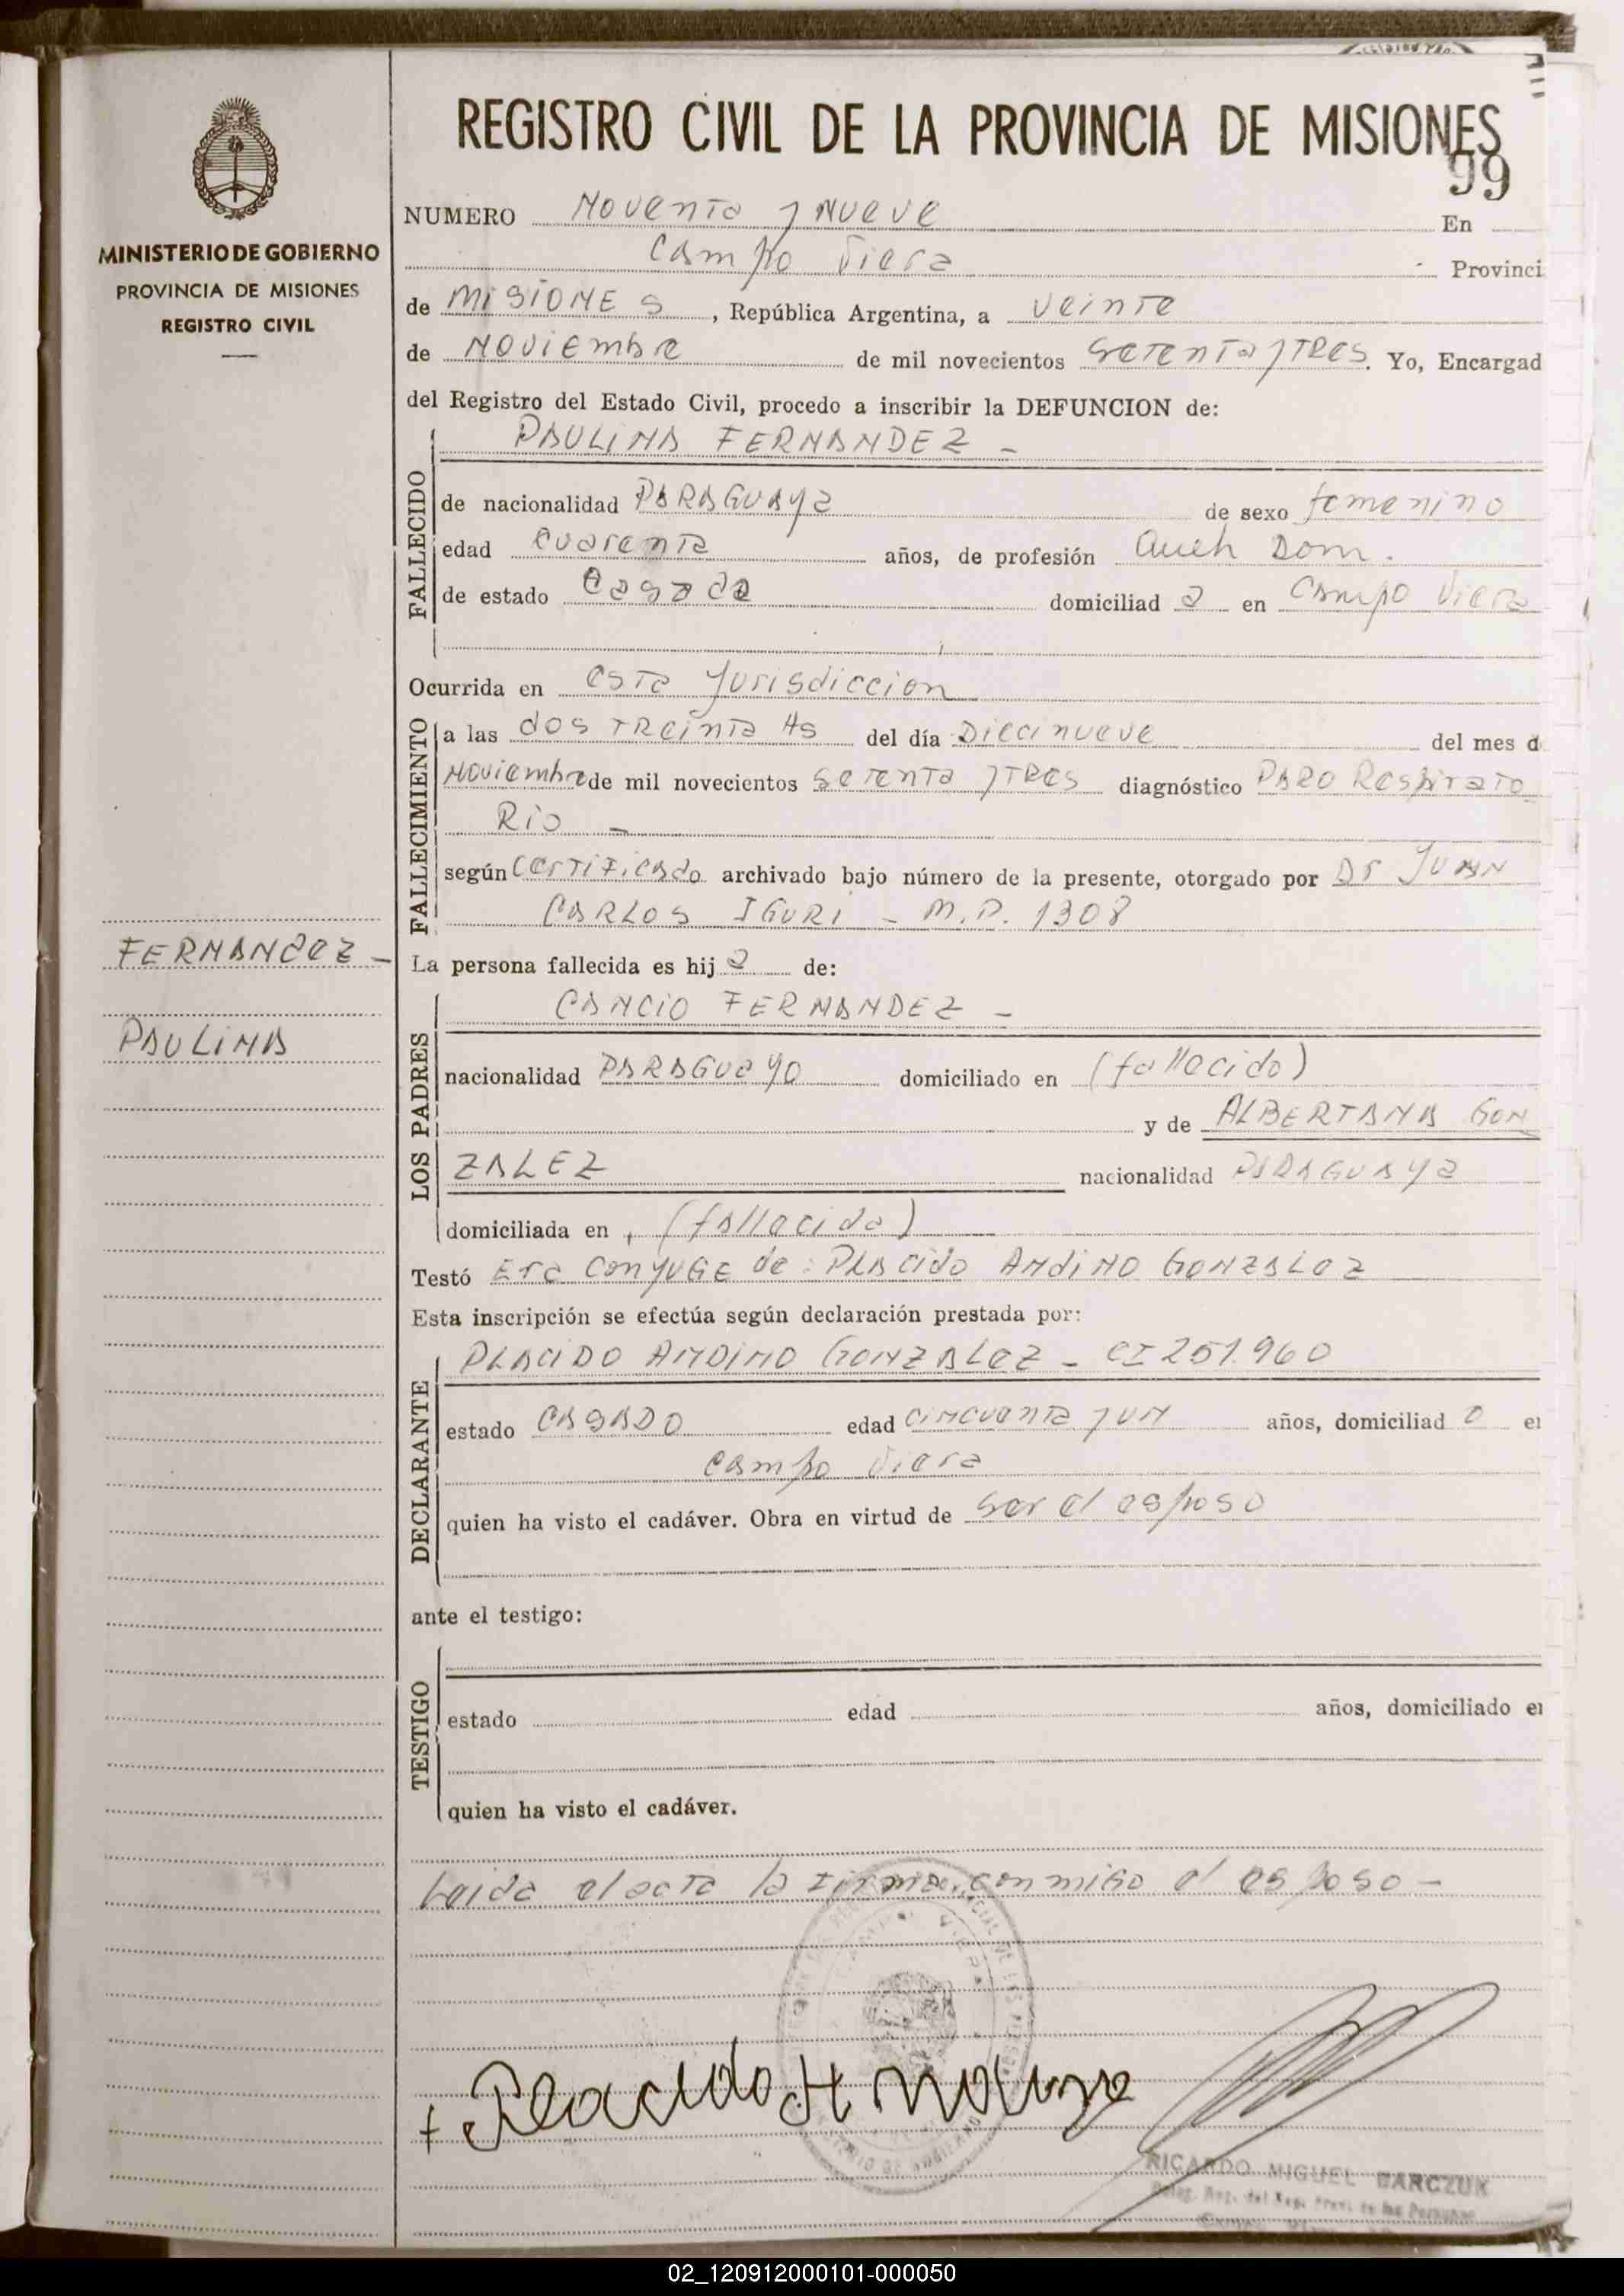 REGISTRO CIVIL DE LA PROVINCIA DE MISIONES
99
MINISTERIO DE GOBIERNO
PROVINCIA DE MISIONES
REGISTRO CIVIL
NUMERO Noventa y Nueve En
Campo Viera Provinci
de MISIONES, República Argentina, a veinte
de Noviembre de mil novecientos setenta y tres. Yo, Encargad
del Registro del Estado Civil, procedo a inscribir la DEFUNCION de:
FALLECIDO
PAULINA FERNANDEZ -
de nacionalidad PARAGUAYa de sexo femenino
edad cuarenta años, de profesión Dom.
de estado casada domiciliad a en Campo Viera
Ocurrida en esta Jurisdiccion
FALLECIMIENTO
a las dos treinta Hs del día Diecinueve del mes d
Noviembre de mil novecientos setenta y tres diagnóstico PARO Respirato
Rio -
según certificado archivado bajo número de la presente, otorgado por Dr JUAN
CARLOS IGURI - M.P. 1308
FERNANdez -
PAULINA
La persona fallecida es hij a de:
LOS PADRES
CANCIO FERNANDEZ -
nacionalidad PARAGUAYO domiciliado en (fallecido)
y de ALBERTANA GON
ZALEZ nacionalidad PARAGUAYa
domiciliada en (fallecida)
Testó Era conyuge de: PLAcido ANdiNO GONZALez
Esta inscripción se efectúa según declaración prestada por:
DECLARANTE
PLACIDO ANDINO GONZALeZ - CI 251.960
estado CASADO edad cincuenta y un años, domiciliad o en
Campo Viera
quien ha visto el cadáver. Obra en virtud de ser el esposo
ante el testigo:
TESTIGO
estado edad años, domiciliado en
quien ha visto el cadáver.
Leida el acta la firma conmigo el esposo -
RICARDO MIGUEL DARCZUK
02_120912000101-000050